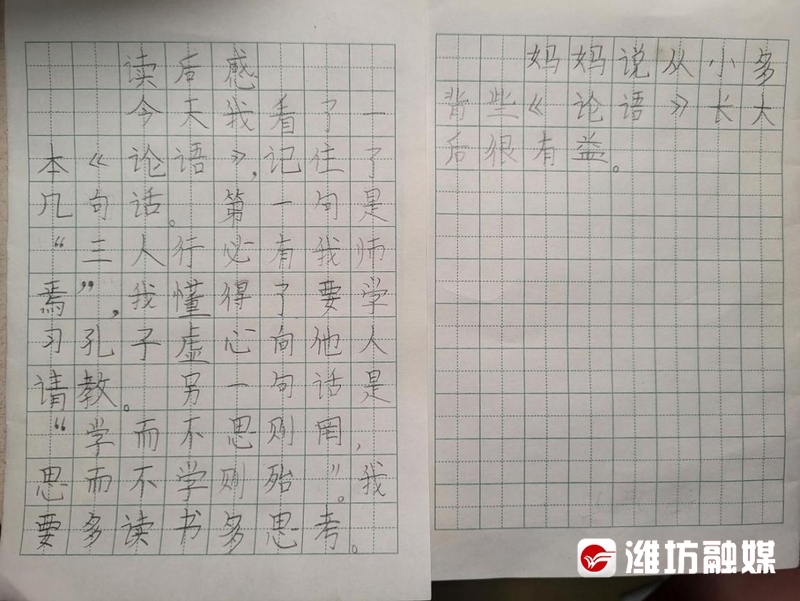 读后感
今天我看了一
本《论语》,记住了
几句话。第一句是
“三人行必有我师
焉”,我懂得了要学
习孔子虚心向他人
请教。另一句话是
“学而不思则罔,
思而不学则殆”。我
要多读书多思考。
妈妈说从小多
背些《论语》长大
后很有益。
潍坊融媒